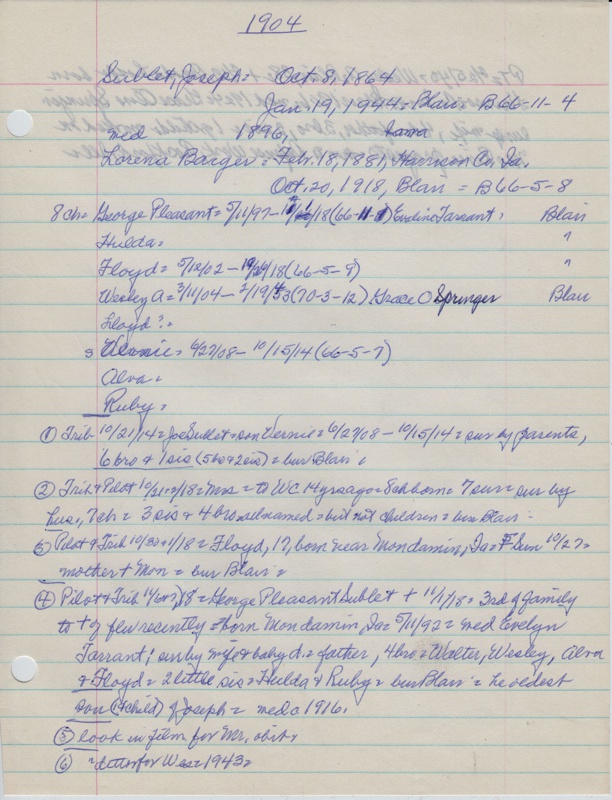 1904
Sublet, Joseph = Oct. 8, 1864
Jan. 19, 1944 = Blair = B66-11-4
med 1896,
Lorena Barger = Feb. 18, 1881, Harrison Co, Ia.
Oct. 20, 1918, Blair = B66-5-8
8 ch = George Pleasant = 5/11/97 - /18 (66-11-) Eveline Tarrant, Blair
Hulda =
Floyd = 5/12/02 - 10/ /18 (66-5-9) "
Wesley A = 3/11/04 - 2/19/ 3 (70-3-12) Grace O Springer Blair
Floyd ? =
3 Vernie = 6/27/08 - 10/15/14 (66-5-7)
Alva =
Ruby =
① Trib 10/21/14 = Joe Sublet = son Vernie = 6/27/08 - 10/15/14 = sur by parents,
6 bro + 1 sis (5 bro + 2 sis) = bur Blair =
② Trib + Pilot 10/ /18 = Mrs = to WC 14 yrs ago = 8 ch born = 7 sur = sur by
hus, 7 ch = 3 sis + 4 bro named = but not children = bur Blair =
③ Pilot + Trib 10/30 + /18 = Floyd, 17, born near Mondamin, Ia = + Sun 10/27 =
mother + Mon = bur Blair =
④ Pilot + Trib 11/6 + 7/18 = George Pleasant Sublet + 11/1/18 = 3rd of family
to + of flu recently = born Mondamin, Ia = 5/11/92 = med Evelyn
Tarrant; sur by wife + baby d. = father, 4 bro = Walter, Wesley, Alva
+ Floyd = 2 little sis = Hulda + Ruby = bur Blair = he oldest
son (+ child) of Joseph = med c 1916.
⑤ look in film for Mr. obit.
⑥ " ditto for Wes = 1943 =